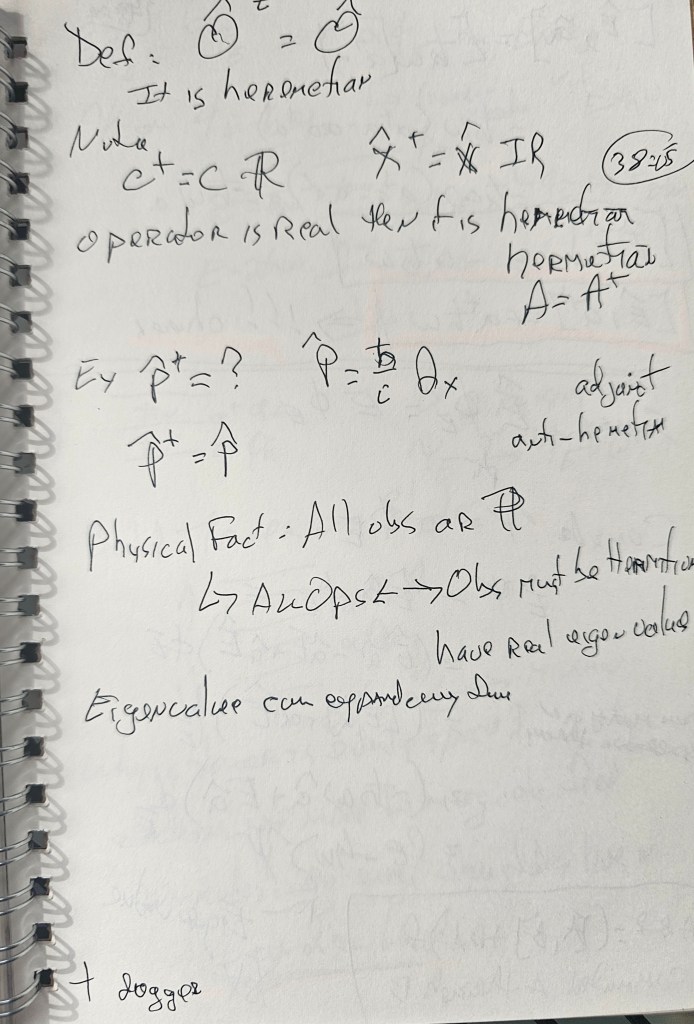 Def: Ô† = Ô
It is heremetian
Note
c† = c ℝ x̂† = x̂ IR 38:05
operator is Real then t is hemedian
hermetian
A = A†
Ex p̂† = ? p̂ = ħ/i ∂x adjoint
p̂† = p̂ anti-hemetian
Physical Fact: All obs are ℝ
↳ All Ops ↔ Obs must be Hermitian
have Real eigenvalues
Eigenvalue can expand any
† dogger